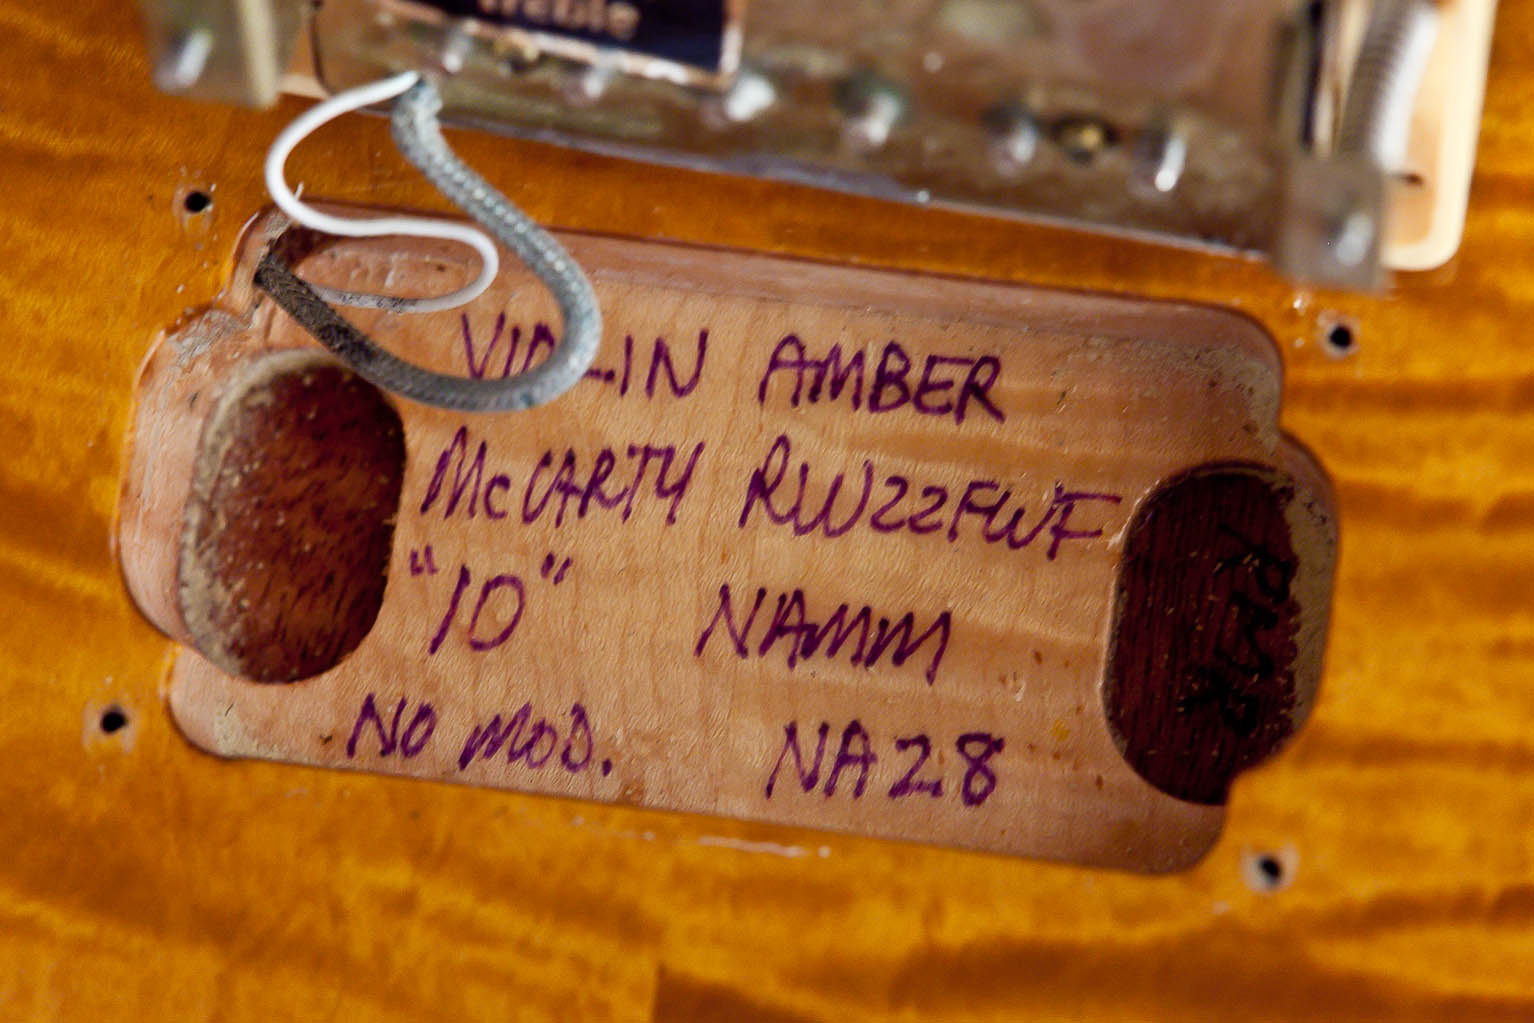 Treble
VIOLIN AMBER
McCARTY RW22FWF
"10" NAMM
NO MOD. NA28